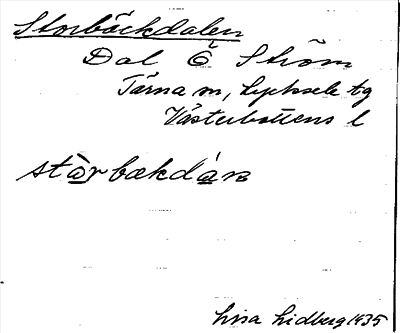 Storbäckdalen
Dal Ö Ström
Tärna sn, Lycksele tg
Västerbottens l
stòrbækdán
Lisa Lidberg 1935